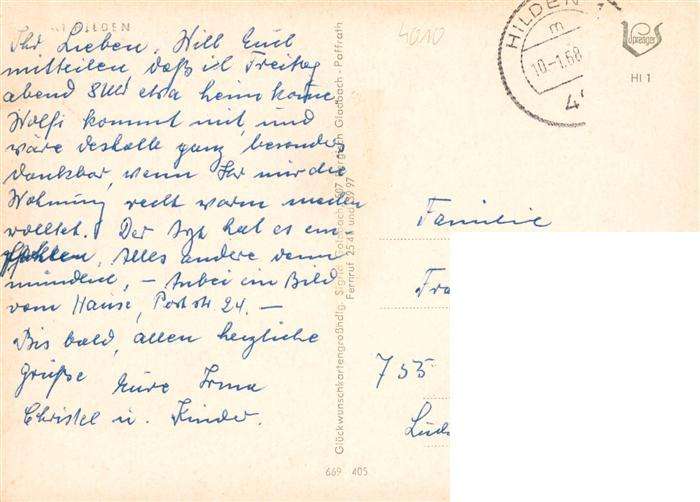 HILDEN
Ihr Lieben, Will Euch
mitteilen, daß ich Freitag
abend 8 Uhr etwa heim komme,
Wolfi kommt mit, und
wäre deshalb ganz besonders
dankbar, wenn Ihr mir die
Wohnung recht warm machen
wolltet. Der Arzt hat es em
pfohlen, Alles andere dann
mündlich, – Anbei ein Bild
vom Hause, Poststr 24. –
Bis bald, allen herzliche
Grüße Eure Irma
Christel u. Kinder.
Glückwunschkartengroßhdlg.
Bergisch Gladbach - Paffrath
Fernruf 25 41 und
669 405
4010
HILDEN 1
m
10.-1.68
Spreager
HI 1
Familie
Fra
755
Lud